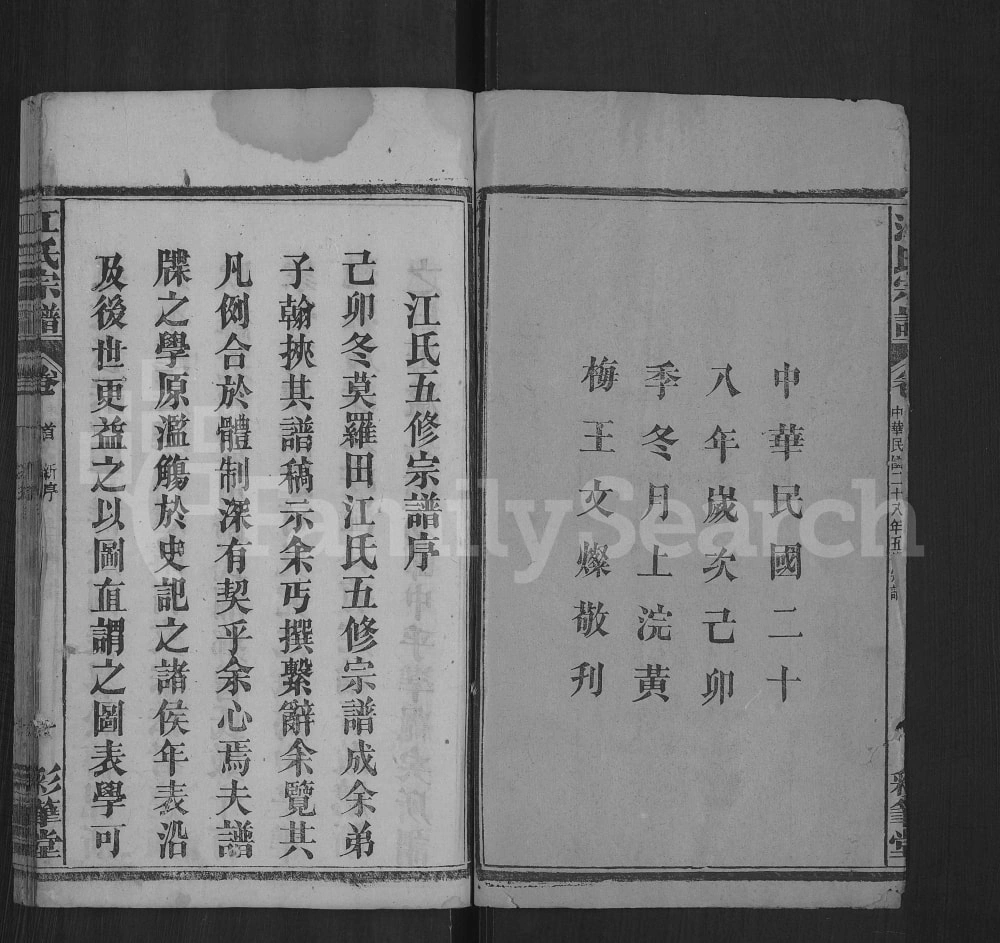 中華民國二十
八年歲次己卯
季冬月上浣黃
梅王文燦敬刋
江氏宗譜
卷
中華民國二十八年五
彩筆堂
江氏五修宗譜序
己卯冬莫羅田江氏五修宗譜成余弟
子翰挾其譜稿示余丐撰繫辭余覽其
凡例合於體制深有契乎余心焉夫譜
牒之學原濫觴於史記之諸侯年表沿
及後世更益之以圖直謂之圖表學可
江氏宗譜
卷
首
新序
彩筆堂
FamilySearch